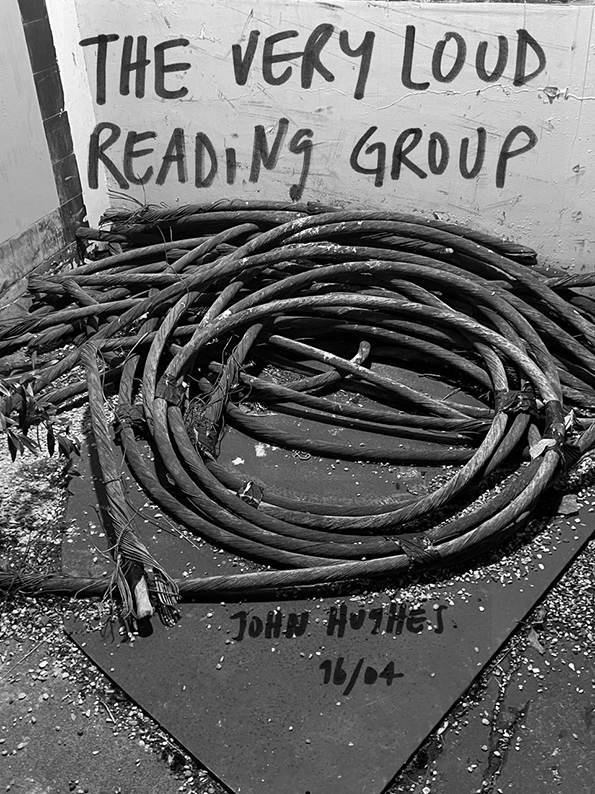 THE VERY LOUD
READiNg GROUP
JOHN HUgHES
16/04